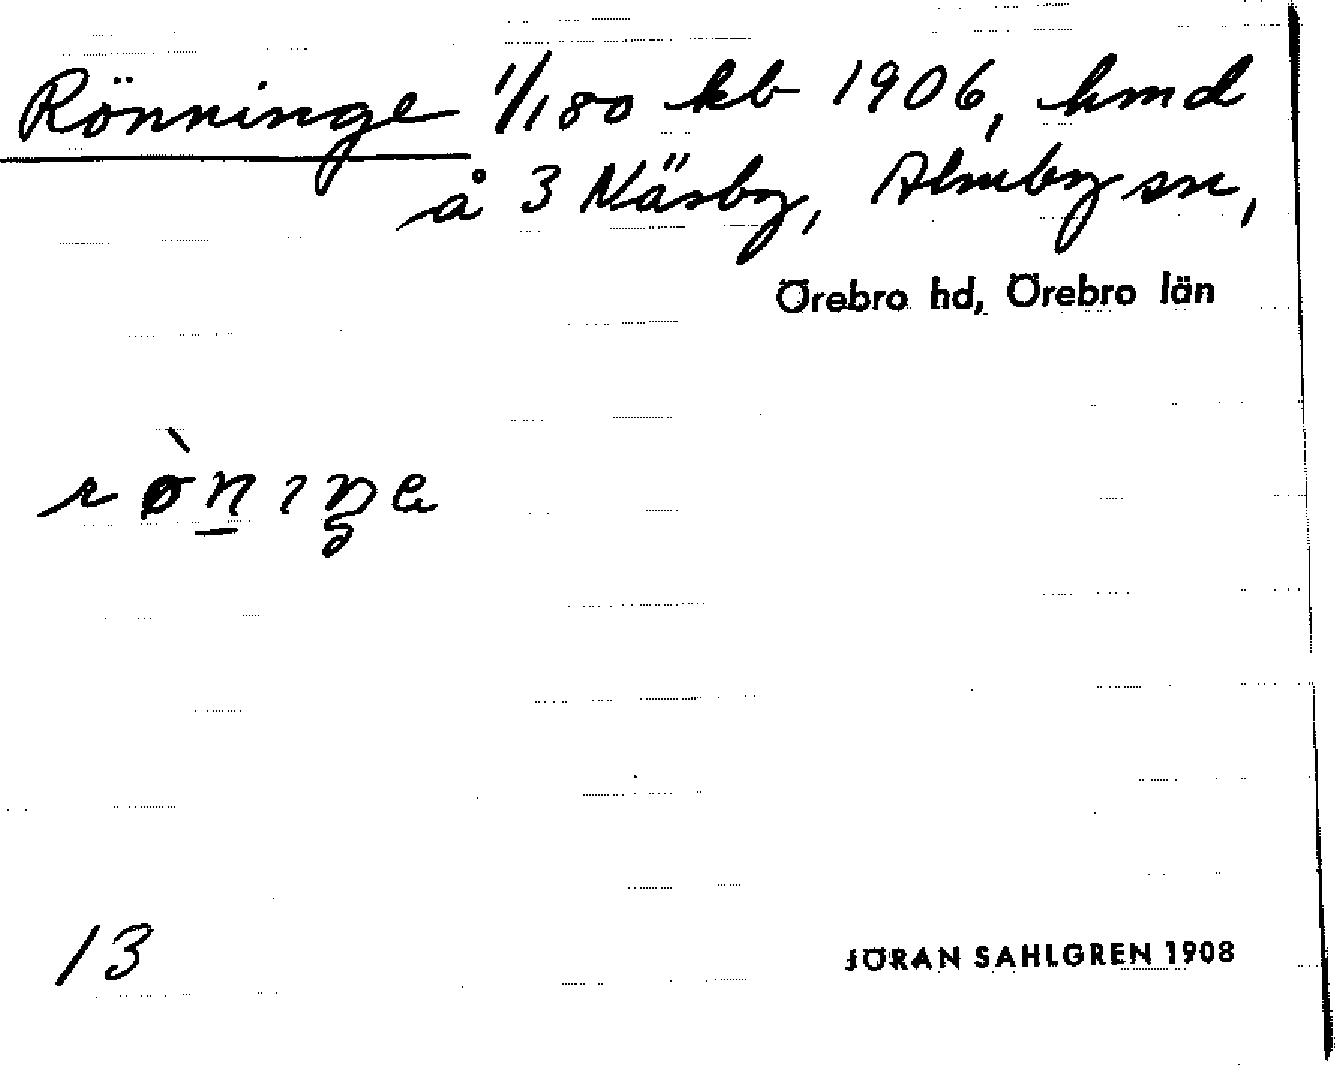 Rönninge 1/180 kb 1906, hmd
å 3 Näsby, Almby sn,
Örebro hd, Örebro län
rø̀nıŋe
13
JÖRAN SAHLGREN 1908